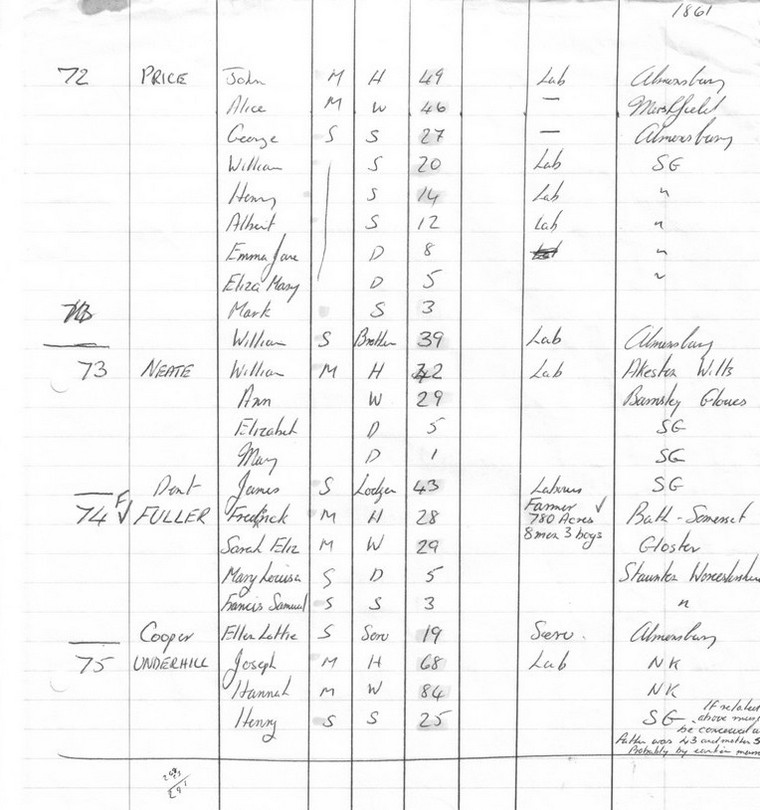 1861
72 PRICE John M H 49 Lab Almonsbury
Alice M W 46 — Marshfield
George S S 27 — Almonsbury
William S 20 Lab SG
Henry S 14 Lab "
Albert S 12 Lab "
Emma Jane D 8 "
Eliza Mary D 5 "
Mark S 3
William S Brother 39 Lab Almonsbury
73 NEATE William M H 42 Lab Akeston Wilts
Ann W 29 Barnsley Gloucs
Elizabeth D 5 SG
Mary D 1 SG
Dent James S Lodger 43 Labourer SG
74 F ✓ FULLER Fredrick M H 28 Farmer ✓ Bath - Somerset
780 Acres
8 men 3 boys
Sarah Eliz M W 29 Gloster
Mary Louisa S D 5 Staunton Worcestershire
Francis Samuel S S 3 "
Cooper Ellen Lottie S Serv 19 Serv. Almonsbury
75 UNDERHILL Joseph M H 68 Lab NK
Hannah M W 84 NK
Henry S S 25 SG
If related
above must
be conceived
Father was 43 and mother 5
Probably by earlier marr